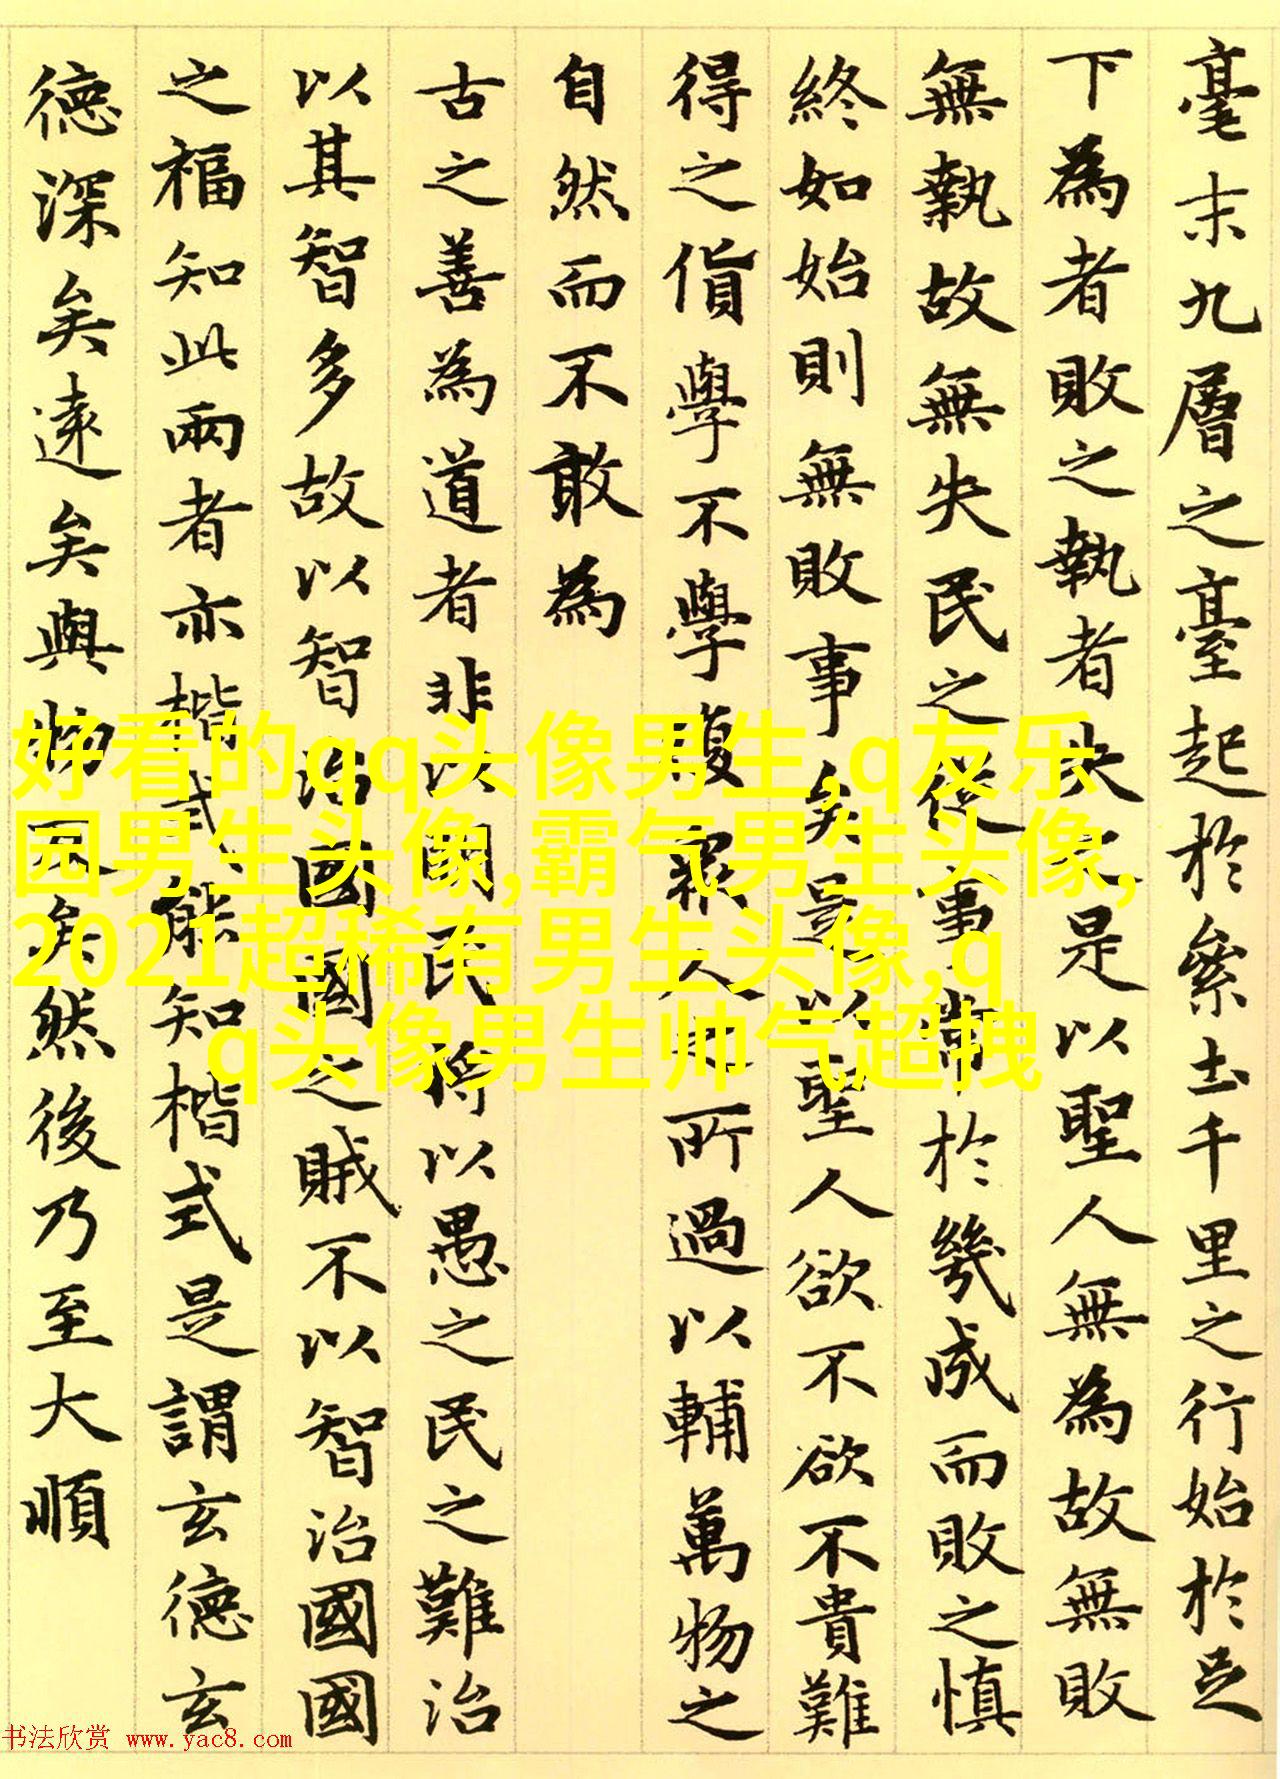 毫末九層之臺起於絫土千里之行始於足
下為者敗之執者失之是以聖人無為故無敗
無執故無失民之從事常於幾成而敗之慎
終如始則無敗事矣是以聖人欲不欲不貴難
得之貨學不學復衆人之所過以輔萬物之
自然而不敢為
古之善為道者非以明民將以愚之民之難治
以其智多故以智治國國之賊不以智治國國
之福知此兩者亦楷式能知楷式是謂玄德玄
德深矣遠矣與物反矣然後乃至大順
好看的qq头像男生,q友乐
园男生头像,霸气男生头像,
2021超稀有男生头像,q
q头像男生帅气超拽
书法欣赏 www.yac8.com